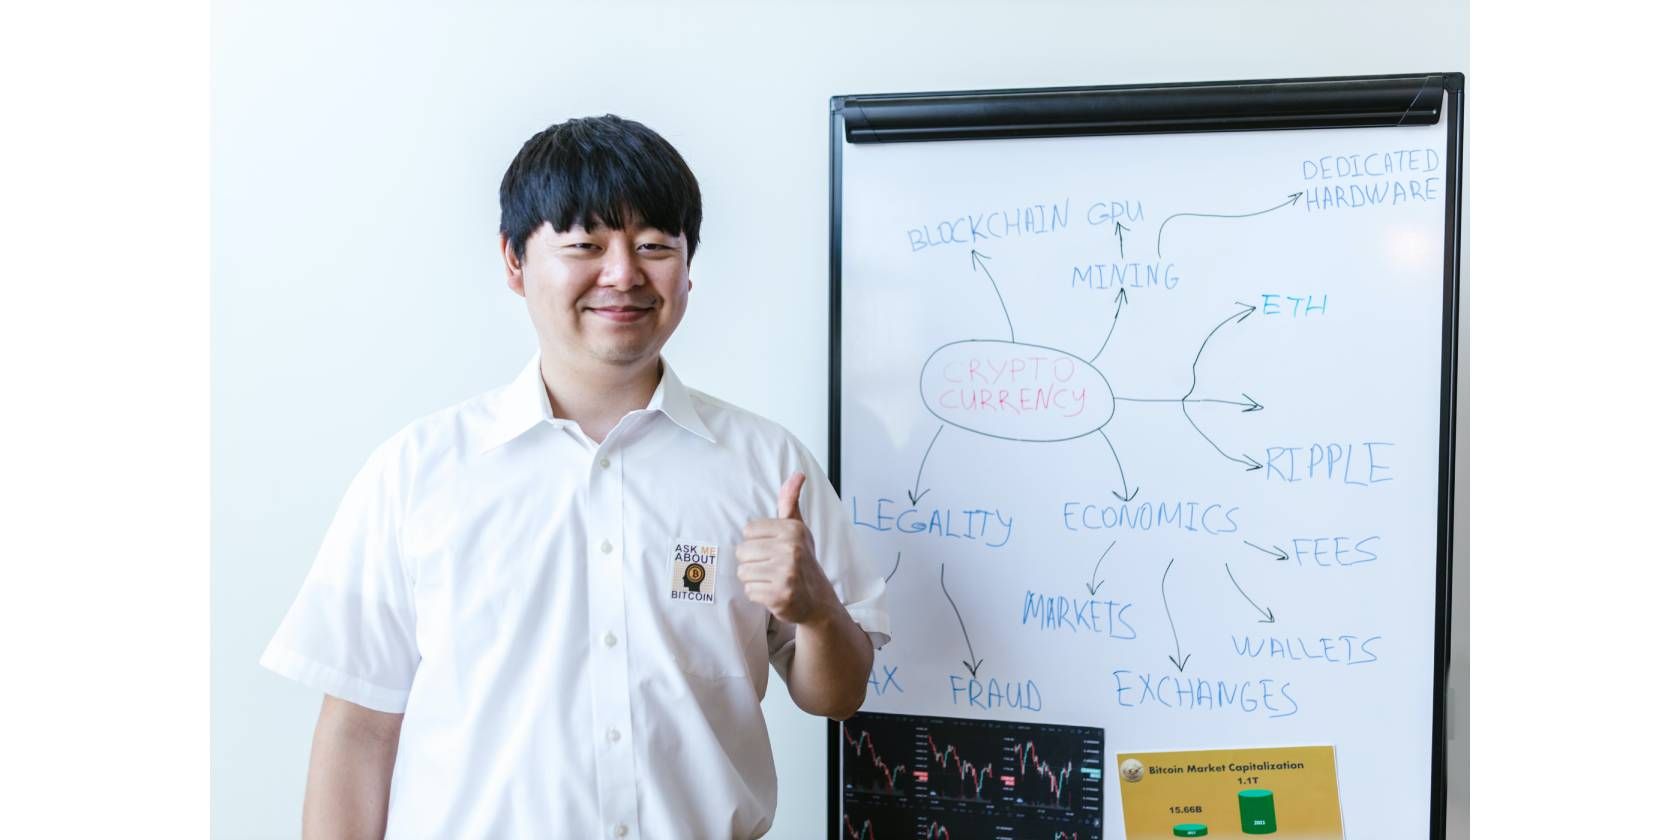 DEDICATED
HARDWARE
BLOCKCHAIN
GPU
MINING
ETH
CRYPTO
CURRENCY
RIPPLE
LEGALITY
ECONOMICS
FEES
MARKETS
WALLETS
AX
FRAUD
EXCHANGES
ASK ME
ABOUT
B
BITCOIN
Bitcoin Market Capitalization
1.1T
15.66B
2021